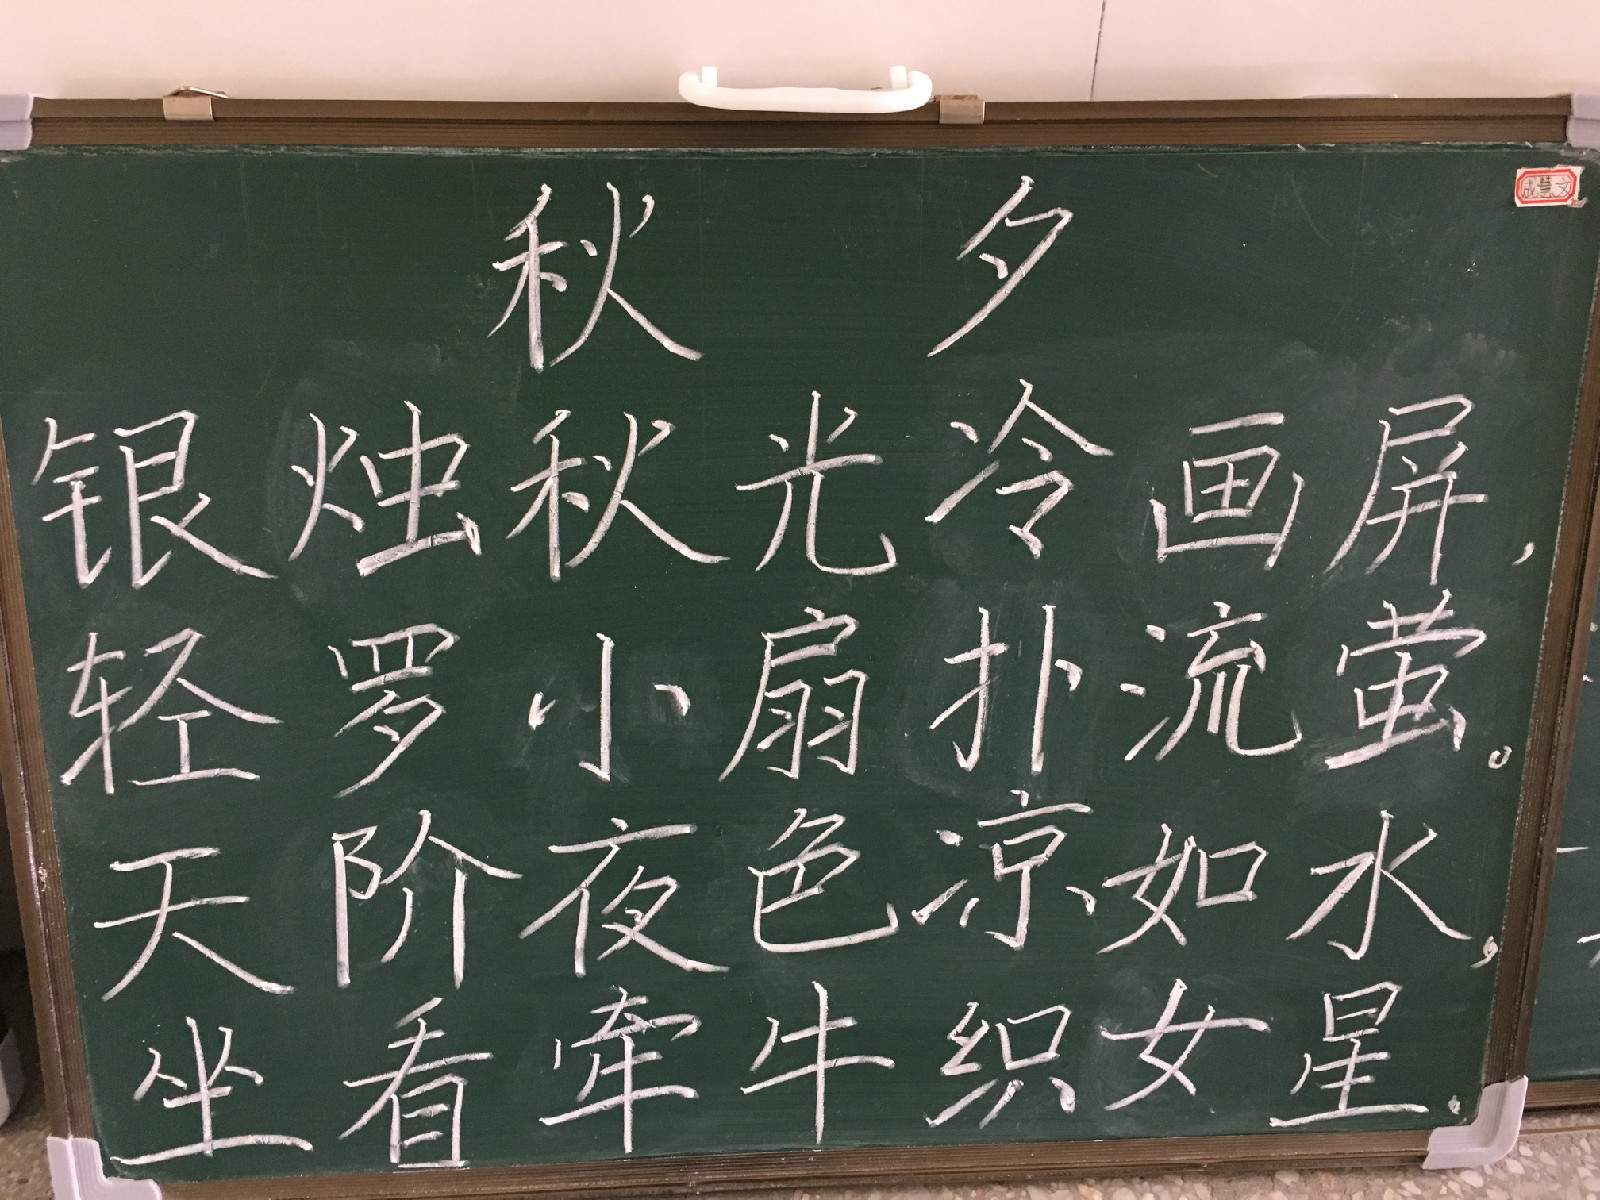 成慧文
秋夕
银烛秋光冷画屏，
轻罗小扇扑流萤。
天阶夜色凉如水，
坐看牵牛织女星。